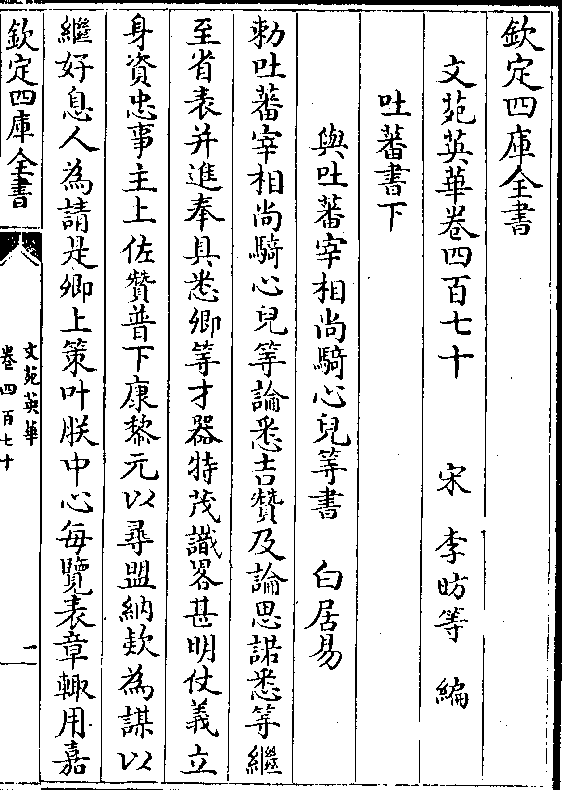 欽定四庫全書
文苑英華卷四百七十　宋　李昉等　編
吐蕃書下
與吐蕃宰相尚騎心兒等書　白居易
勅吐蕃宰相尚騎心兒等論悉吉贊及論思諾悉等繼
至省表并進奉具悉卿等才器特茂識畧甚明仗義立
身資忠事主上佐贊普下康黎元以尋盟納欵為謀以
繼好息人為請是卿上策叶朕中心每覽表章輙用嘉
欽定四庫全書
文苑英華
卷四百七十
一